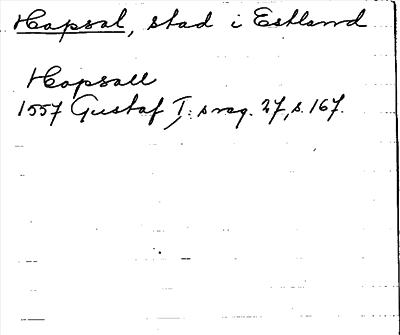 Hapsal, stad i Estland
Hapsall
1557 Gustaf I: s reg. 27, s. 167.